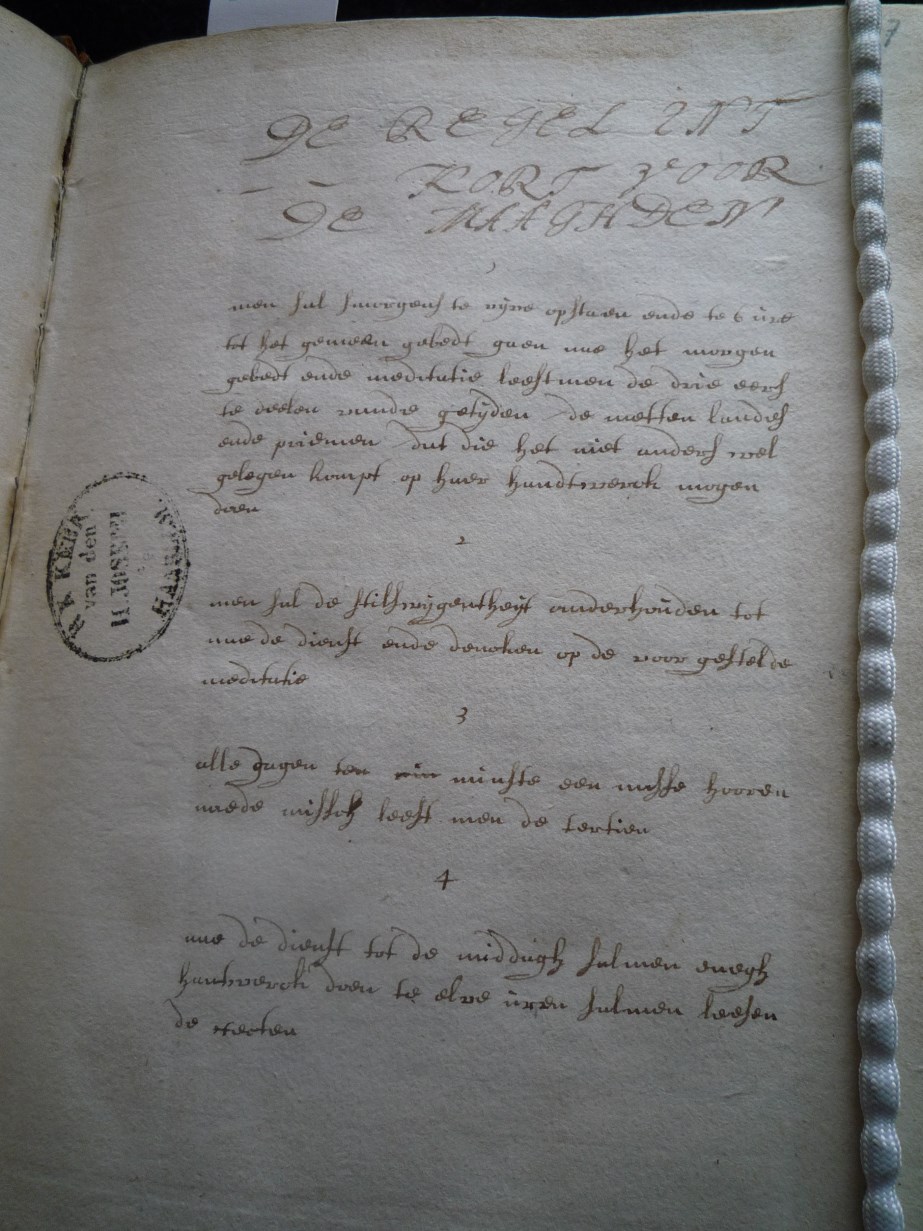 7
DE REGEL INT
KORT VOOR
DE MAAGHDEN
men sal smorgens te vijve opstaen ende te 6 ure
tot het gemeen gebedt gaen nae het morgen
gebedt ende meditatie leestmen de drie eers
te deelen vande getijden de metten landes
ende priemen dat die het niet anders wel
gelegen kompt op haer handtwerck mogen
doen
2
men sal de stilswijgentheyt onderhouden tot
nae de dienst ende dencken op de voor gestelde
meditatie
3
alle dagen ten minste een misse hooren
naede misse leest men de tertien
4
nae de dienst tot de middagh salmen enegh
hantwerck doen te elve uren salmen leesen
de sexten
R K KERK
van den
H JOSEPH
HAARLEM